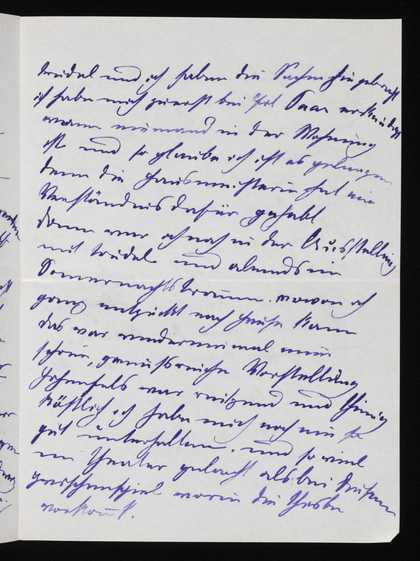 Friedel und ich haben die Sachen hingebracht
ich habe mich zuerst bei Frl. Saar erkundigt
wann niemand in der Wohnung
ist und so glaube ich ist es gelungen
denn die Hausmeisterin hat ein
Verständnis dafür gehabt
dann war ich noch in der Ausstellung
mit Friedel und abends im
Sommernachtstraum. wovon ich
ganz entzückt nach Hause kam
das war wiedereinmal eine
schöne, genussreiche Vorstellung
Hohenfels war reizend und Thimig
köstlich ich habe mich noch nie so
gut unterhalten und so viel
im Theater gelacht als bei diesem
zwischenspiel worin die Thisbe
vorkommt.